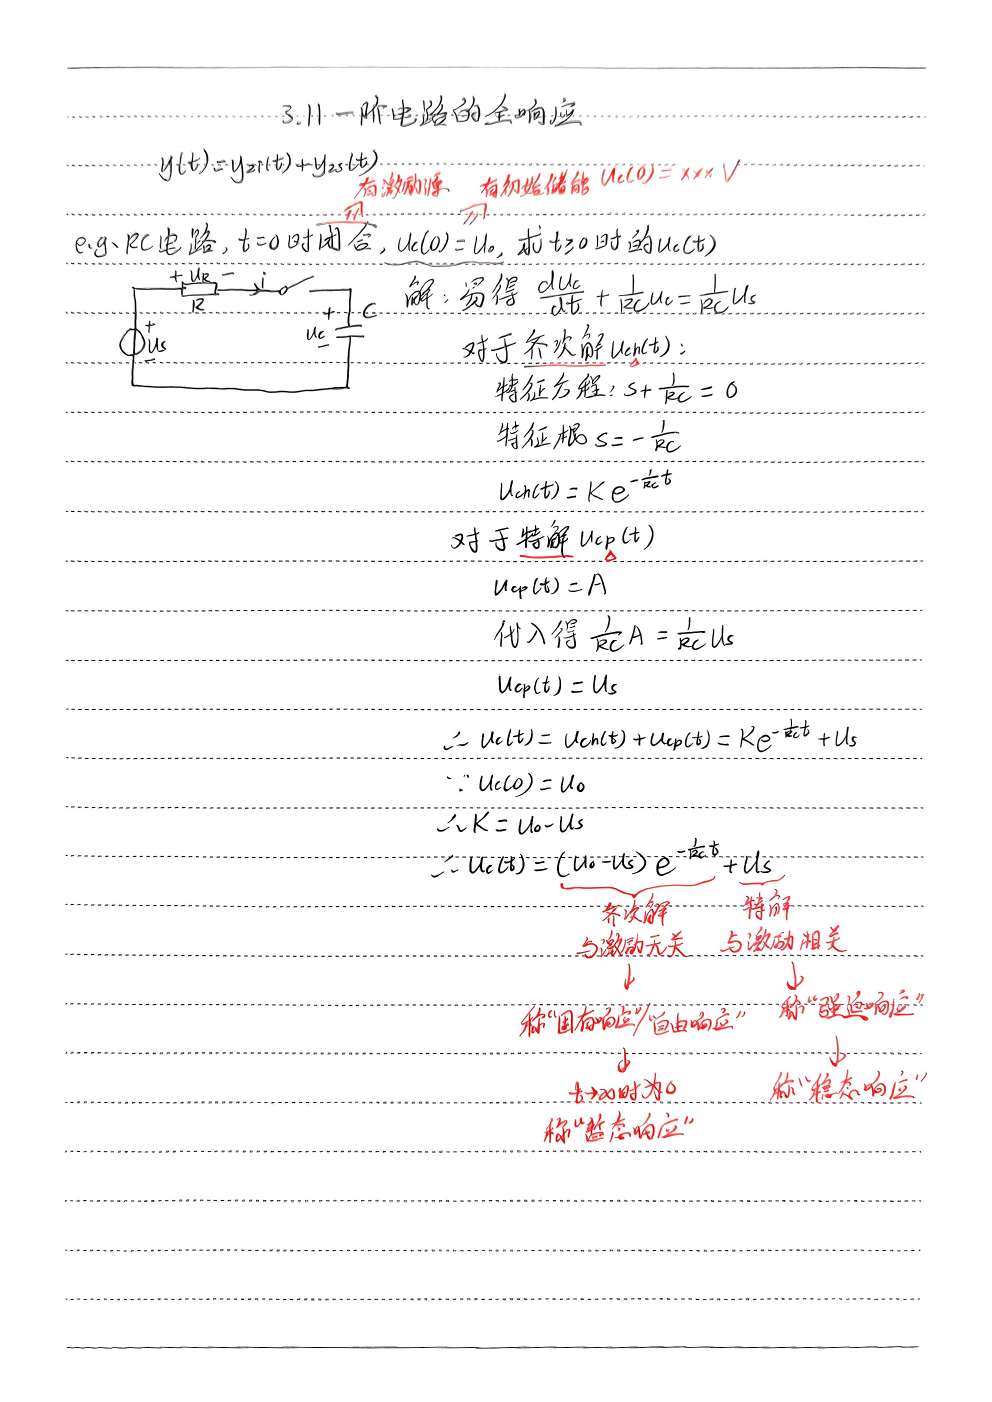 3.11 一阶电路的全响应
y(t)=yzi(t)+yzs(t)
有激励源 有初始储能 Uc(0)=xxx √
e.g. RC电路, t=0时闭合, Uc(0)=U₀, 求t≥0时的Uc(t)
+ UR − i
R
+ Us −
+ Uc −
C
解: 易得 dUc/dt + 1/RC Uc = 1/RC Us
对于齐次解 Uch(t):
特征方程: S+1/RC=0
特征根 S=−1/RC
Uch(t)=Ke^(−1/RC t)
对于特解 Ucp(t)
Ucp(t)=A
代入得 1/RC A = 1/RC Us
Ucp(t)=Us
∴ Uc(t)=Uch(t)+Ucp(t)=Ke^(−1/RC t)+Us
∵ Uc(0)=U₀
∴ K=U₀−Us
∴ Uc(t)=(U₀−Us)e^(−1/RC t)+Us
齐次解 特解
与激励无关 与激励相关
↓ ↓
称“固有响应”/“自由响应” 称“强迫响应”
↓ ↓
t→∞时为0 称“稳态响应”
称“暂态响应”